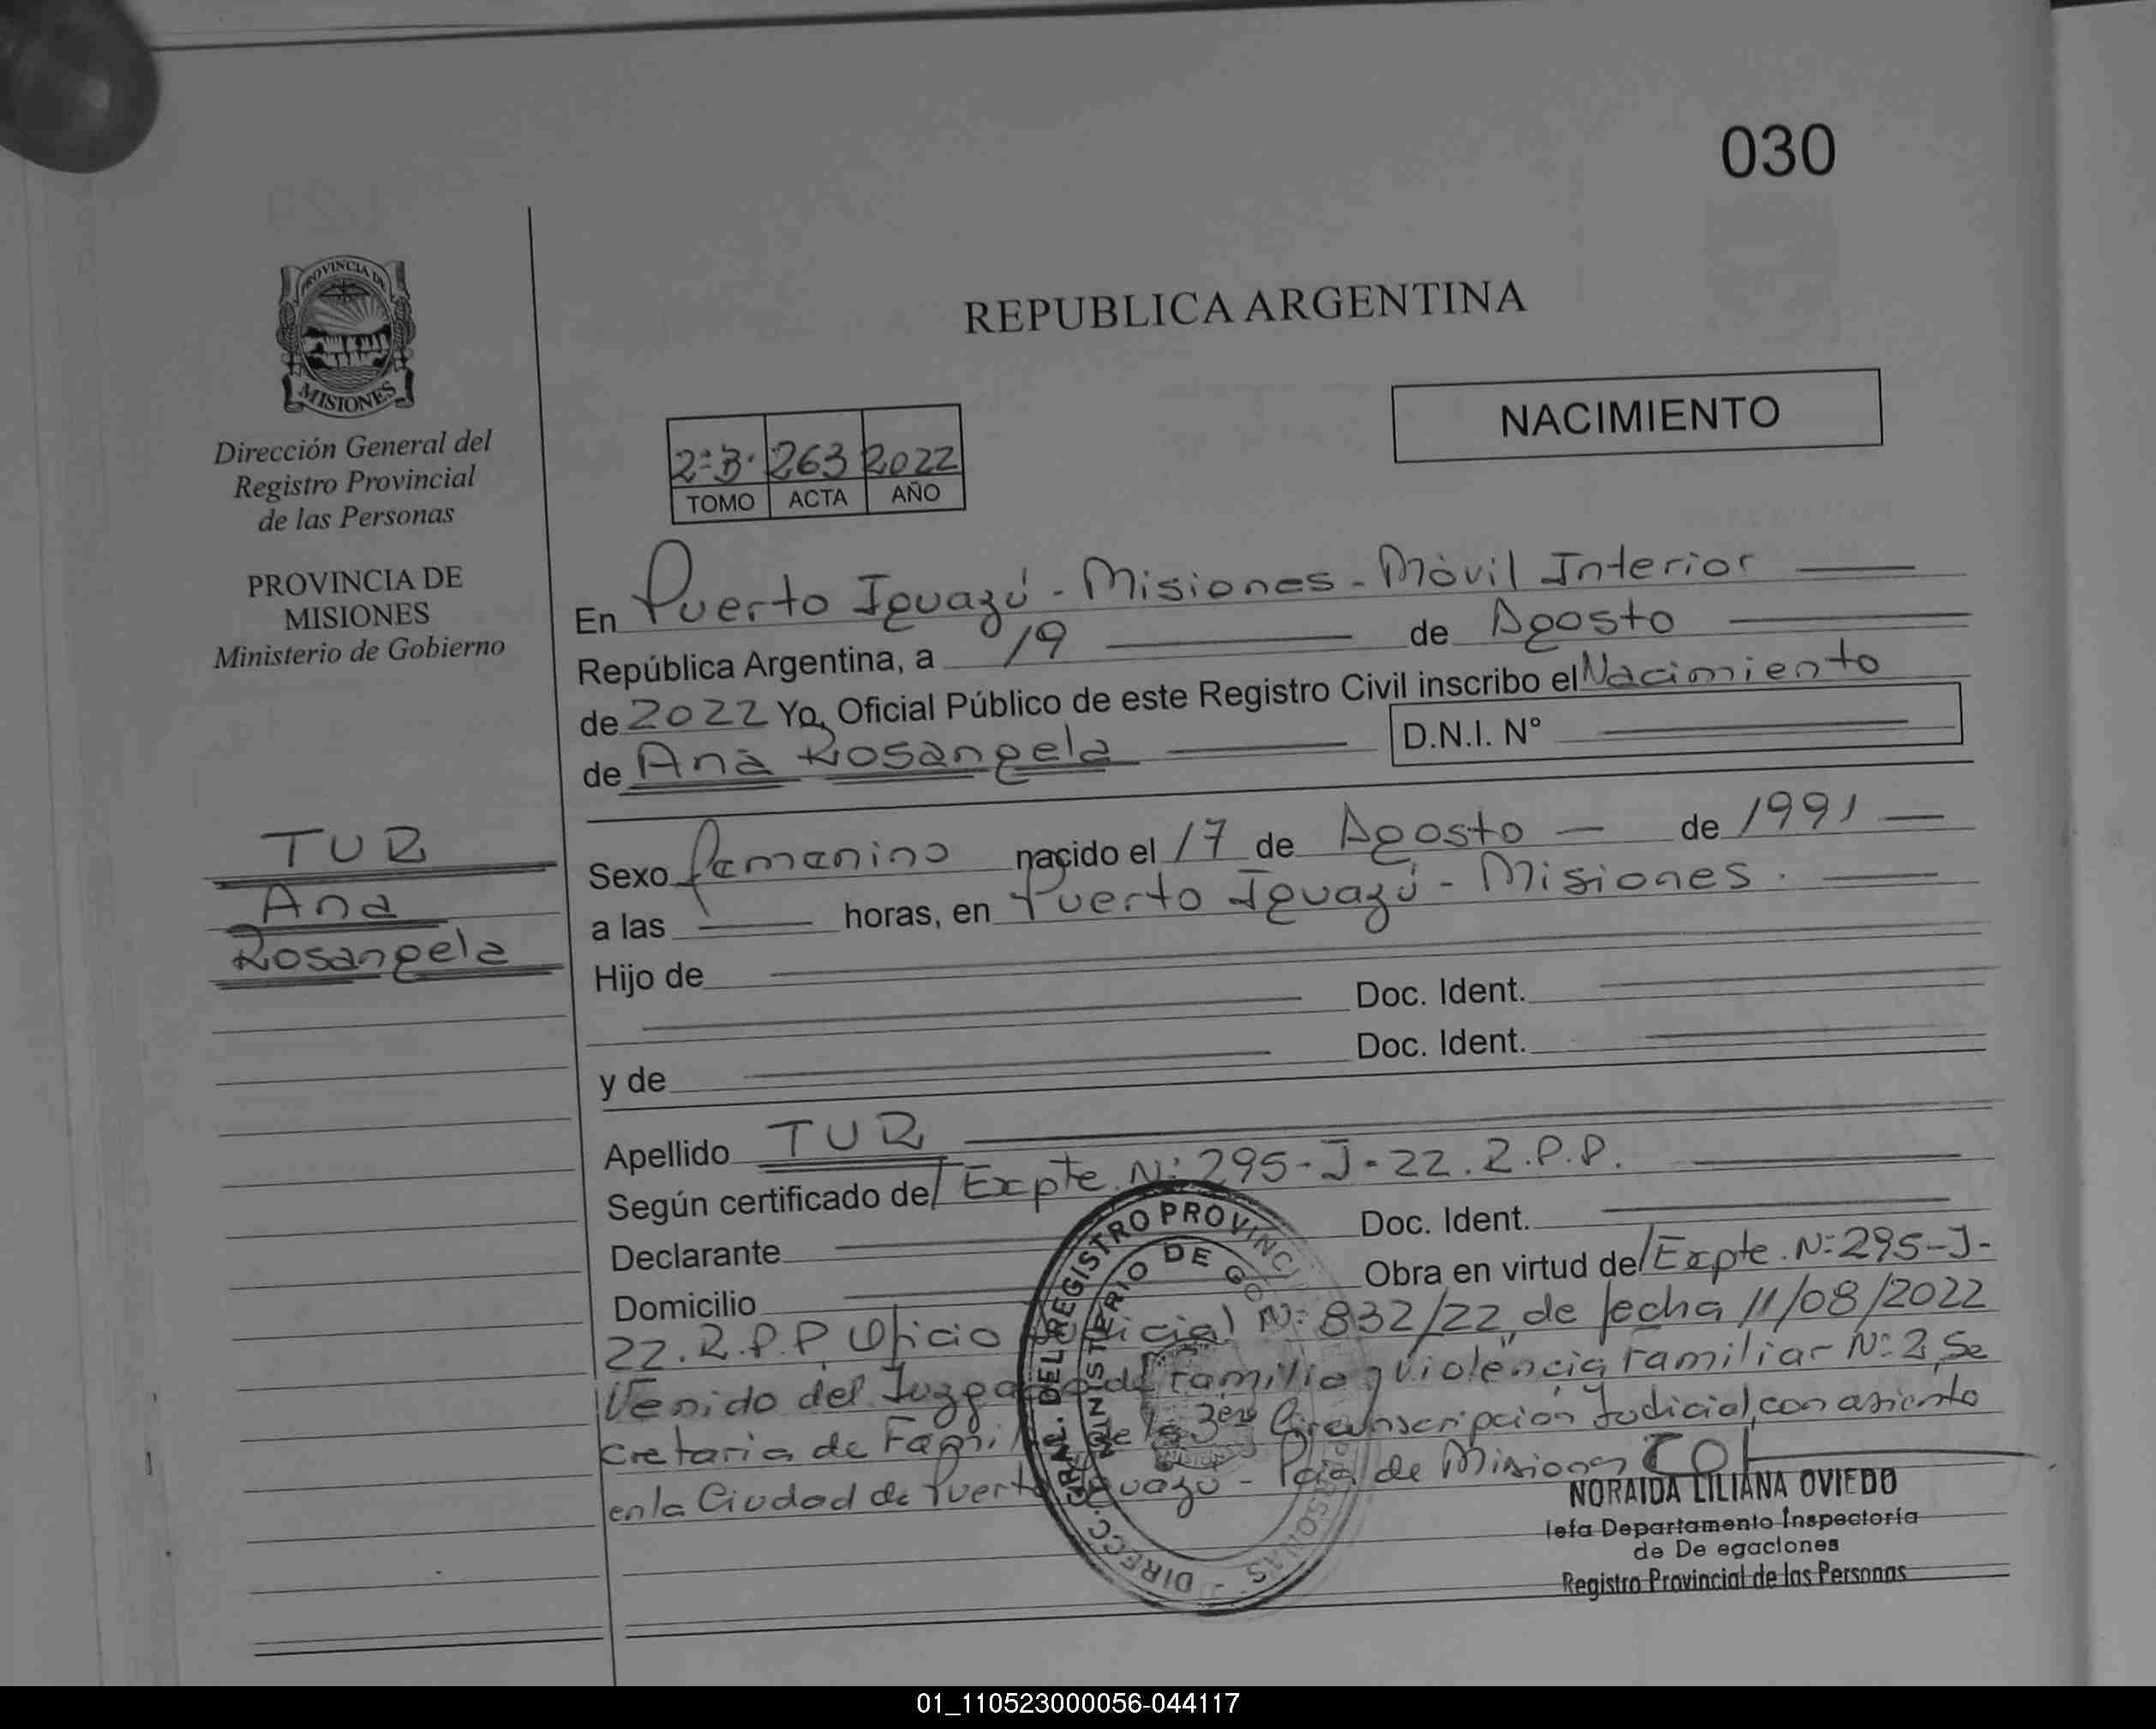 030
PROVINCIA DE
MISIONES
Dirección General del
Registro Provincial
de las Personas
PROVINCIA DE
MISIONES
Ministerio de Gobierno
TUR
Ana
Rosangela
REPUBLICA ARGENTINA
NACIMIENTO
2:B. 263 2022
TOMO ACTA AÑO
En Puerto Iguazú - Misiones - Móvil Interior
República Argentina, a 19 de Agosto
de 2022 Yo, Oficial Público de este Registro Civil inscribo el Nacimiento
de Ana Rosangela D.N.I. Nº
Sexo femenino nacido el 17 de Agosto - de 1991
a las horas, en Puerto Iguazú - Misiones.
Hijo de
Doc. Ident.
Doc. Ident.
y de
Apellido TUR
Según certificado del Expte. Nº 295-J-22.R.P.P.
Declarante Doc. Ident.
Domicilio Obra en virtud del Expte. Nº 295-J-
22.R.P.P Oficio Judicial Nº 832/22, de fecha 11/08/2022
Venido del Juzgado de Familia y violencia Familiar Nº 2, Se
cretaria de Famil de la 3era Circunscripción Judicial, con asiento
en la Ciudad de Puerto Iguazú - Pcia de Misiones
DIRECC. GRAL. DEL REGISTRO PROVINCI
MINISTERIO DE GO
NORAIDA LILIANA OVIEDO
Jefa Departamento Inspectoría
de De egaciones
Registro Provincial de las Personas
01_110523000056-044117